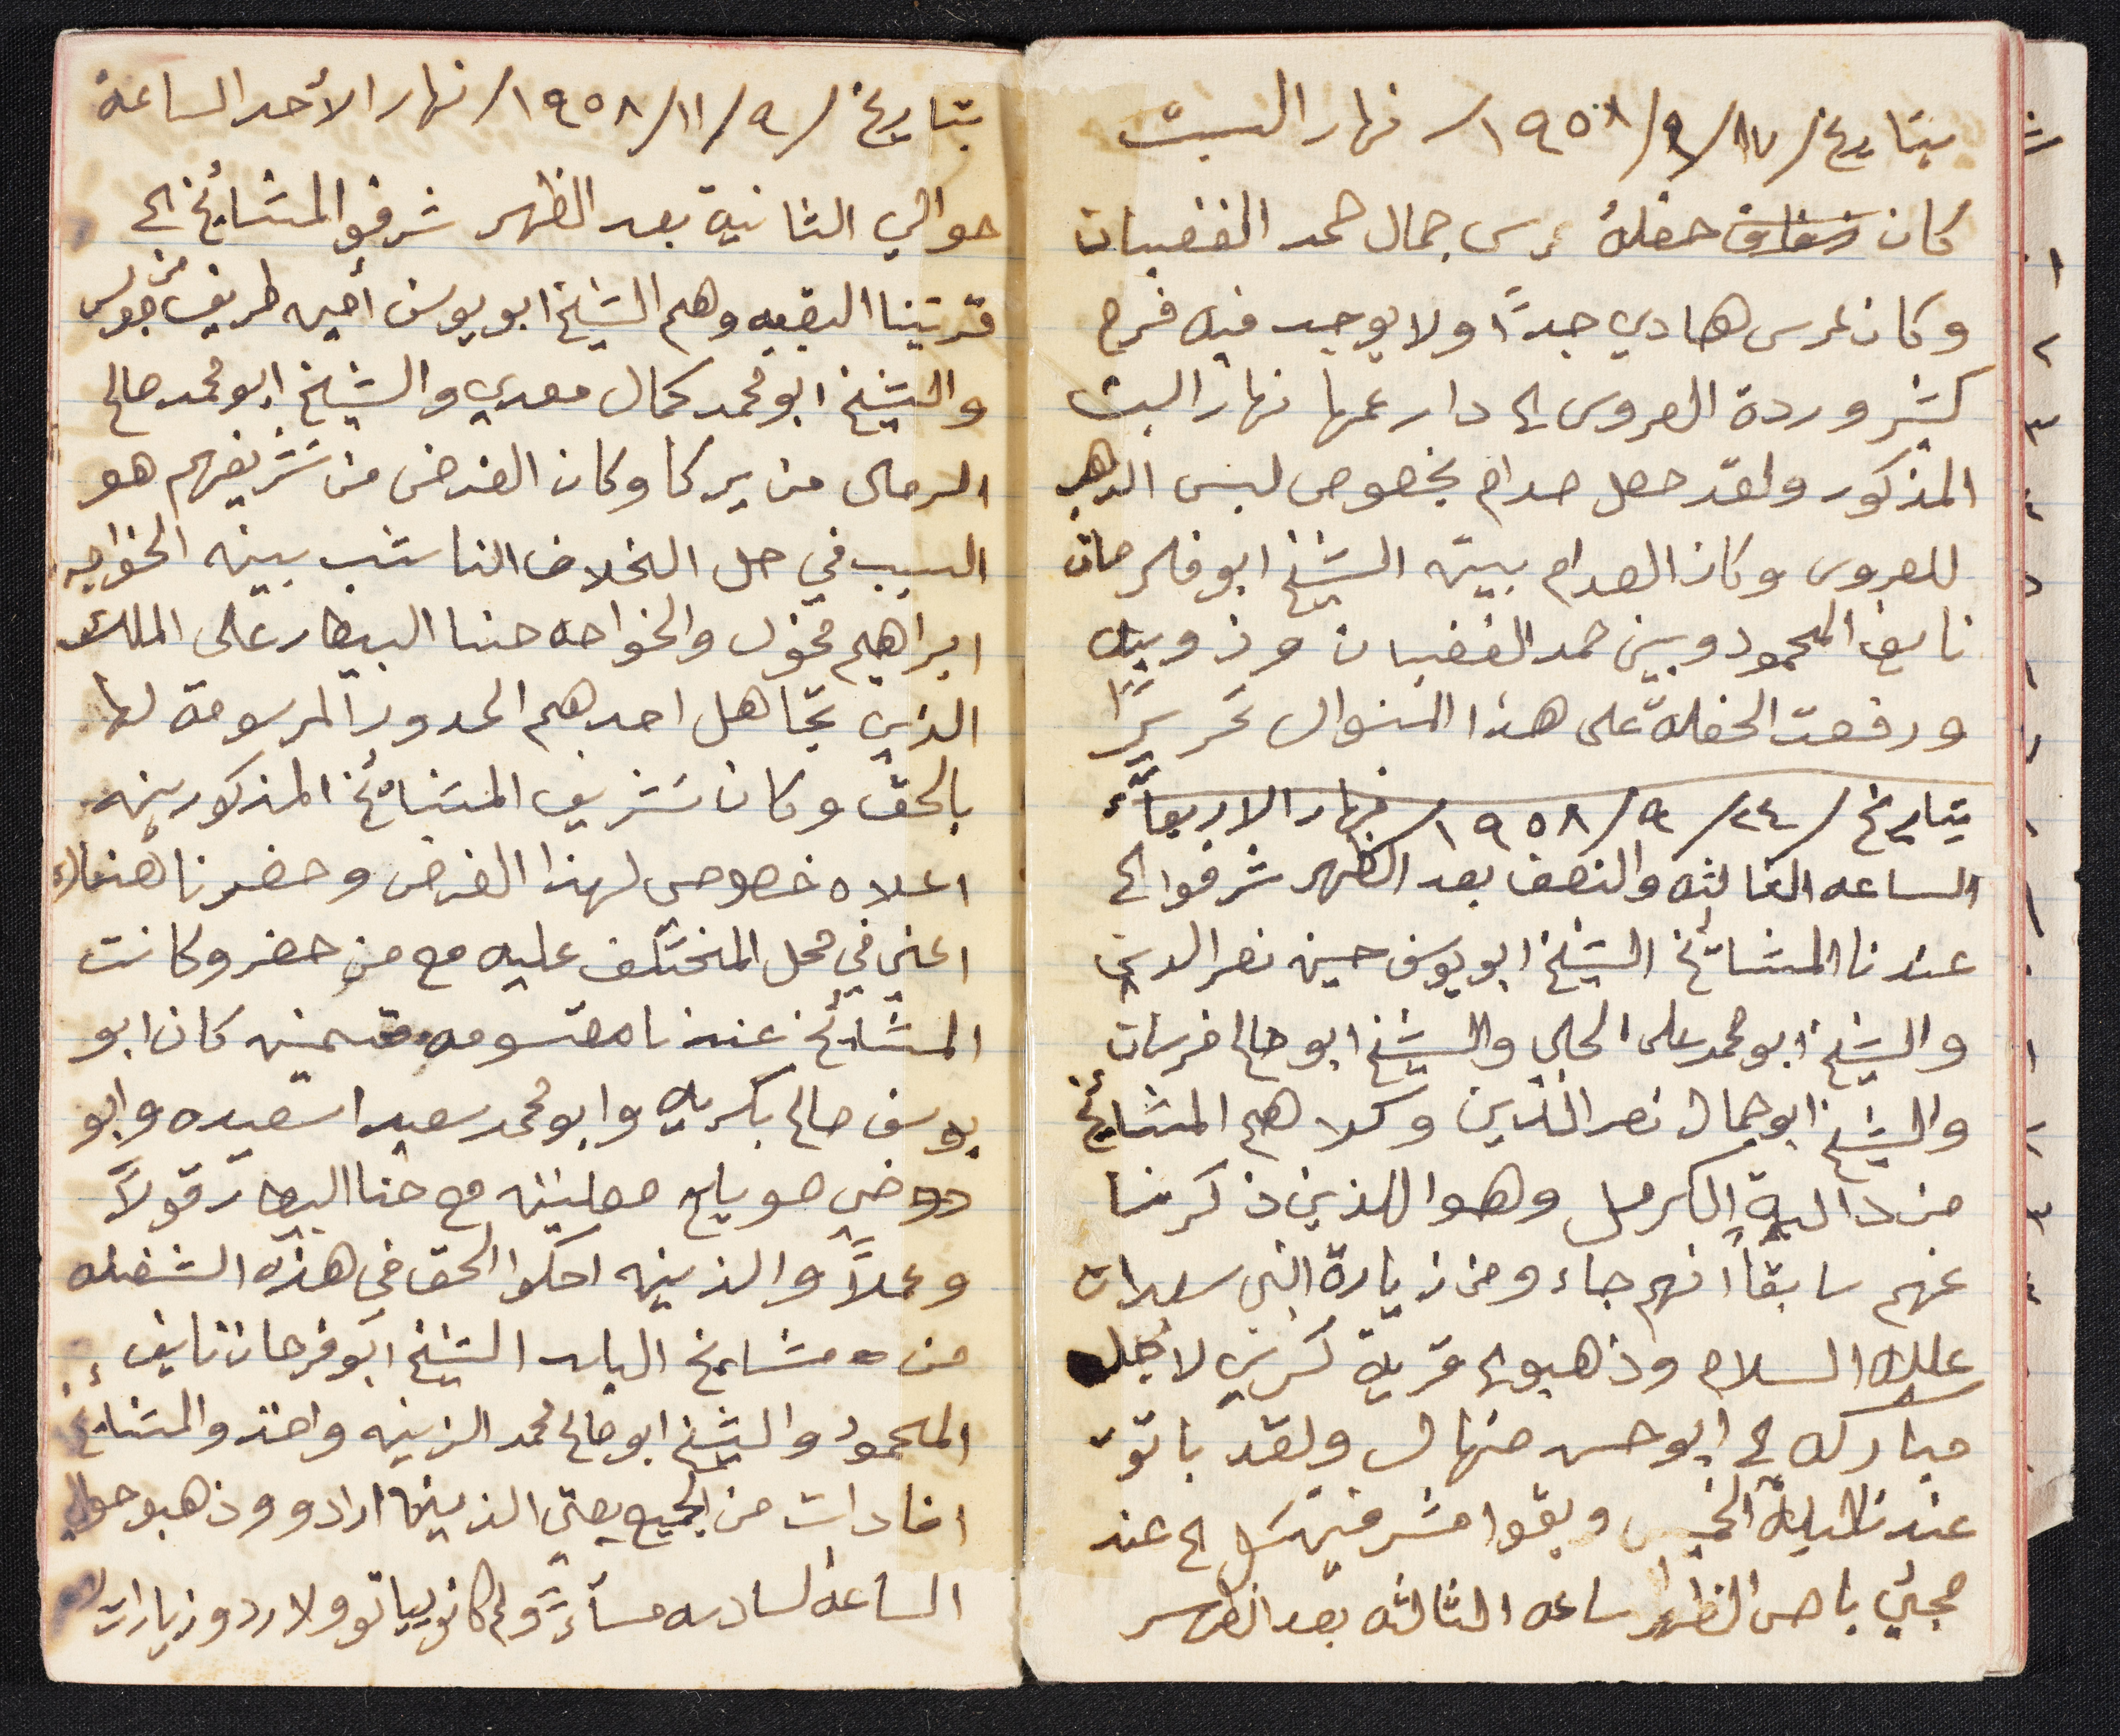 بتاريخ / ١٧/ ٩/ ١٩٥٨/ نهار السبت
كان حفلة عرس جمال حمد الغضبان
وكان عرس هادي جداً ولا يوجد فيه فرح
كثير وردة العروس الى دار عمها نهار السبت
المذكور ولقد حصل صدام بخصوص لبس الدهب
للعروس وكان الصدام بين الشيخ ابو فرحان
نايف المحمود وبين حمد الغضبان وذويه
ورفعت الحفلة على هذا المنوال تحريراً
بتاريخ / ٢٤/ ٩/ ١٩٥٨/ نهار الاربعاء
الساعه الثالثه والنصف بعد الظهر شرفوا الى
عندنا المشائخ الشيخ ابو يوسف حسين نصر الدين
والشيخ ابو محمد علي الحلبي والشيخ ابو صالح فرسان
والشيخ ابو جمال نصر الدين وكلا هم المشائخ
من دالية الكرمل وهوا للذين ذكرنا
عنهم سابقاً انهم جاء و من زيارة النبي سبلان
عليه السلام وذهبو الى قرية كسرى لاجل
مبارك الى ابو حسن منهال ولقد باتو
عندنا ليلة الخميس وبقوا مشرفين الى عند
مجيئ باص الظهر ساعه الثالثه بعد الظهر
بتاريخ / ٩/ ١١/ ١٩٥٨/ نهار الأحد الساعة
حوالي الثانية بعد الظهر شرفو المشائخ الى
قريتنا البقيعه وهم الشيخ ابو يوسف أمين طريف من جولس
والشيخ ابو محمد كمال معدي والشيخ ابو محمد صالح
من يركا وكان الغرض من تشريفهم هو
السبب في حل الخلاف الناشب بين الخواجه
ابراهيم مخول والخواجه حنا البيطار على الملك
الذي تجاهل احدهم الحدود المرسومة لها
بالحق وكان تشريف المشائخ المذكورين
اعلاه خصوصي لهذا الغرض وحضرنا هنالك
اعني في محل المختلف عليه مع من حضر وكانت
المشائخ عندنا مقسومه قسمين كان ابو
يوسف صالح بكريه وابو محمد سعيد اسعيده وابو
صويلح مع حنا البيطار قولاً
وعملاً والذين احكوا الحق في هذه الشغله
من مشايخ البلد الشيخ ابو فرحان نايف
المحمود والشيخ ابو صالح محمد الزينه واخذو المشائخ
افادات من الجميع يعني الذين ارادو وذهبو حوالي
الساعة السادسه مساءً ولم كانو يباتو ولا ردو زيارات